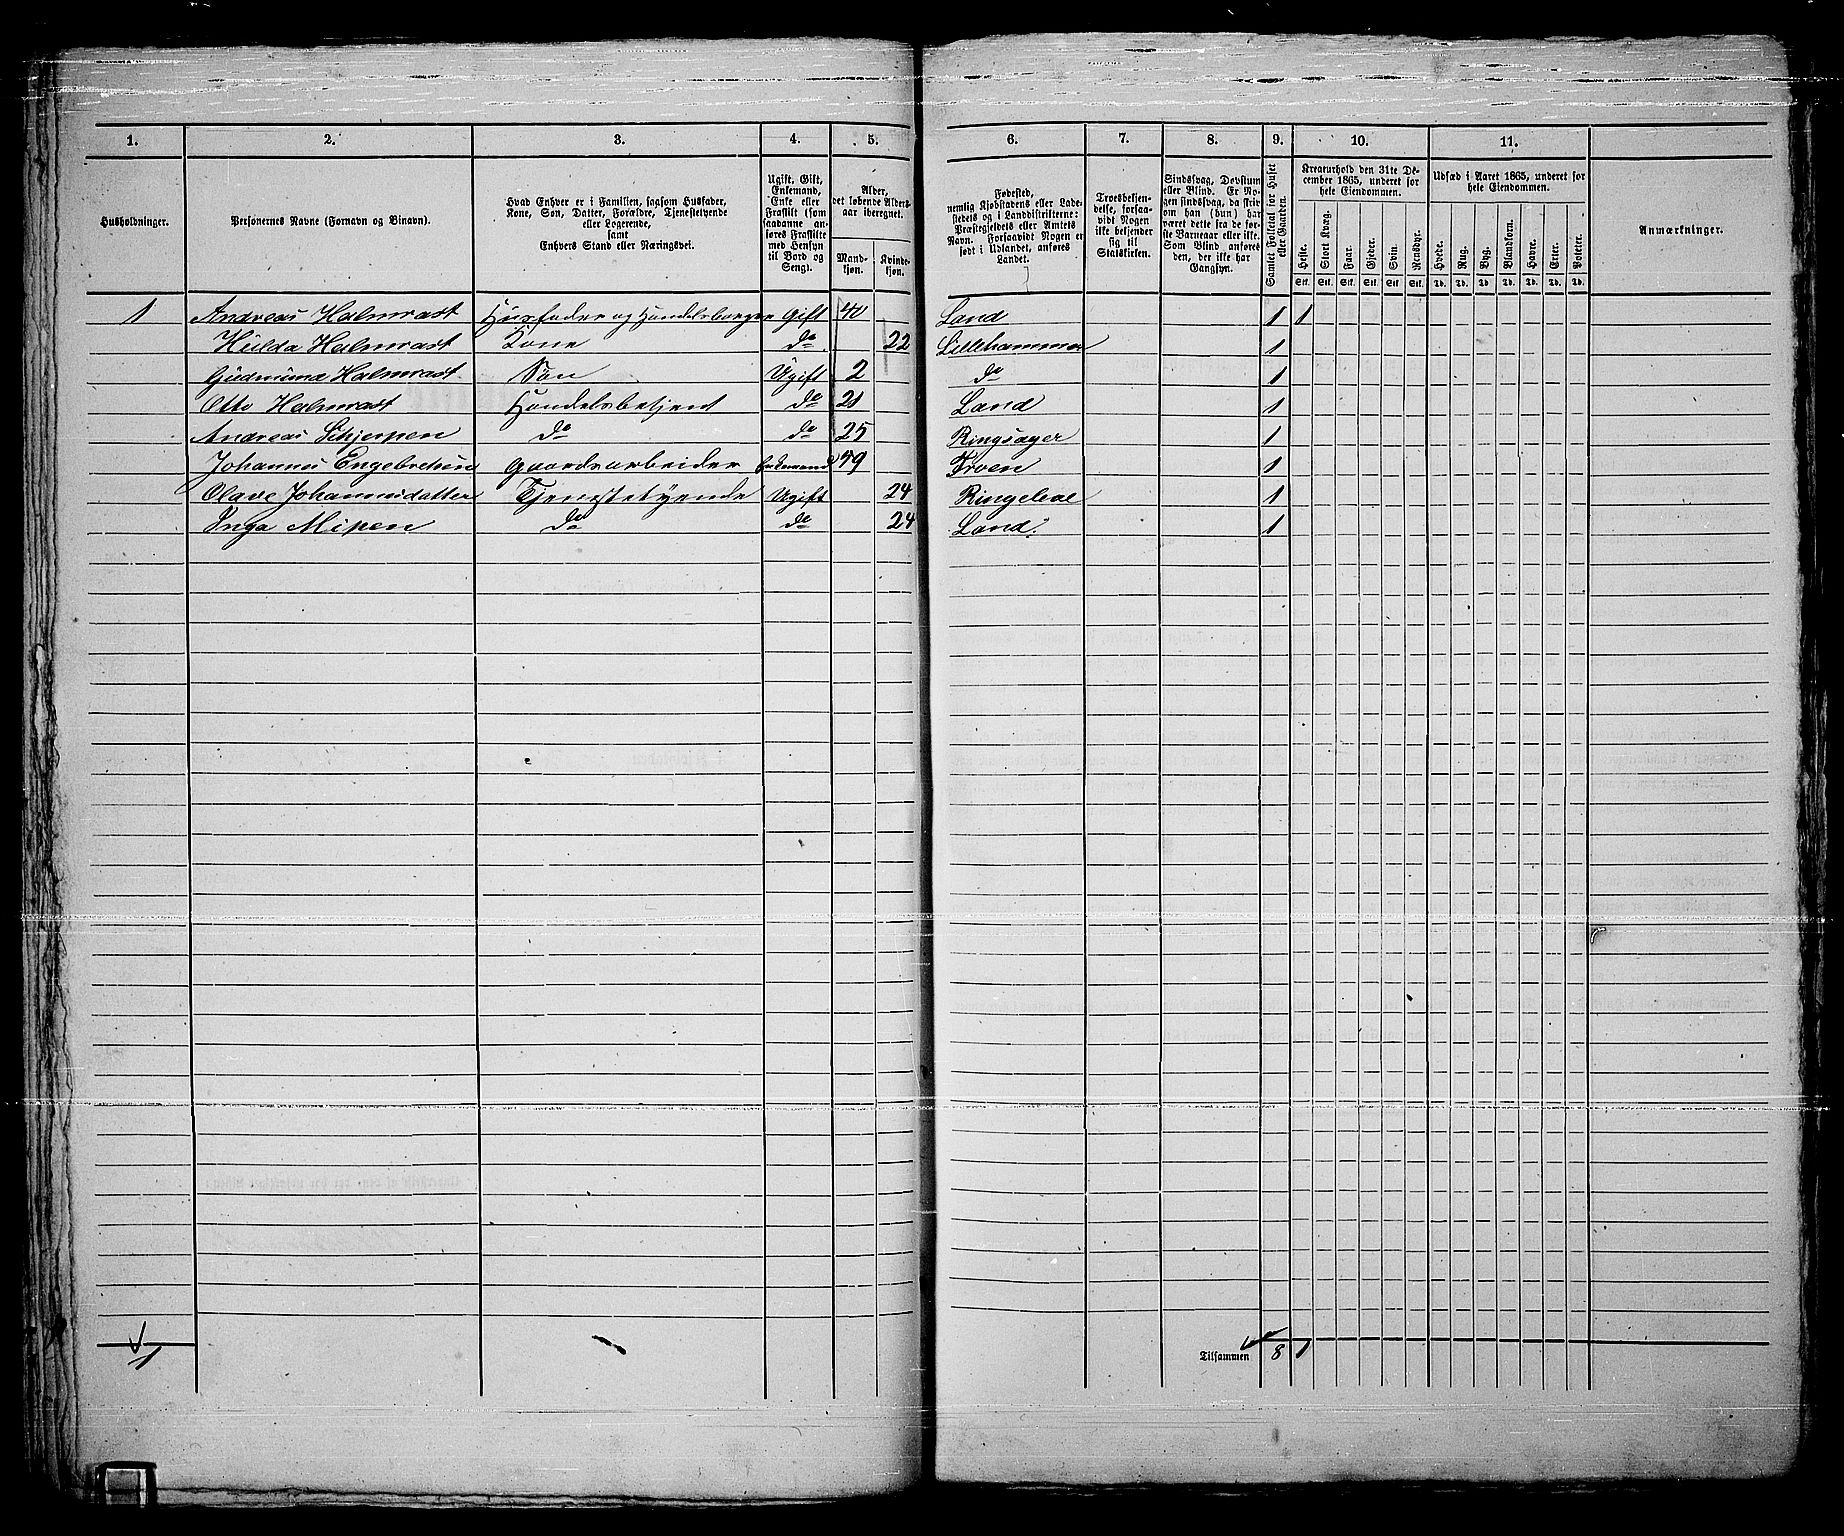 1. 2. 3. 4. 5. 6. 7. 8. 9. 10. 11.
Husholdninger.
Personernes Navne (Fornavn og Binavn).
Hvad Enhver er i Familien, sagsom Husfader,
Kone, Søn, Datter, Forældre, Tjenestetyende
eller Logerende,
samt
Enhvers Stand eller Næringsvei.
Ugift, Gift,
Enkemand,
Enke eller
Fraskilt (som
saadanne an-
føres Fraskilte
med Hensyn
til Bord og
Seng).
Alder,
det løbende Alders-
aar iberegnet.
Mand-
kjøn.
Kvinde-
kjøn.
Fødested,
nemlig Kjøbstadens eller Lade-
stedets og i Landdistrikterne:
Præstegjeldets eller Amtets
Navn. Forsaavidt Nogen er
født i Udlandet, anføres
Landet.
Troesbekjen-
delse, forsaa-
vidt Nogen
ikke bekjender
sig til
Statskirken.
Sindssvag, Døvstum
eller Blind. Er No-
gen sindssvag, da skri-
ves om han (hun) har
været dette fra de før-
ste Barneaar eller ikke.
Som Blind anføres
den, der ikke har
Gangsyn.
Samlet Folketal for Huset
eller Gaarden.
Kreaturhold den 31te De-
cember 1865, underet for
hele Eiendommen.
Heste. Stort Kvæg. Faar. Gjeder. Sviin. Rensdyr.
Stk. Stk. Stk. Stk. Stk. Stk.
Udsæd i Aaret 1865, underet for
hele Eiendommen.
Hvede. Rug. Byg. Blandkorn. Havre. Erter. Poteter.
Td. Td. Td. Td. Td. Td. Td.
Anmærkninger.
1 Andreas Halmrast Husfader og Handelsborger Gift 40 Land 1 1
Hulda Halmrast Kone do 22 Lillehammer 1
Gudmund Halmrast Søn Ugift 2 do 1
Otto Halmrast Handelsbetjent do 21 Land 1
Andreas Skjerpen do do 25 Ringsager 1
Johannes Engebretsen Gaardsarbeider Enkemand 49 Froen 1
Olave Johannesdatter Tjenestetyende Ugift 24 Ringeboe 1
Inga Mipen do do 24 Land. 1
1
Tilsammen 8 1